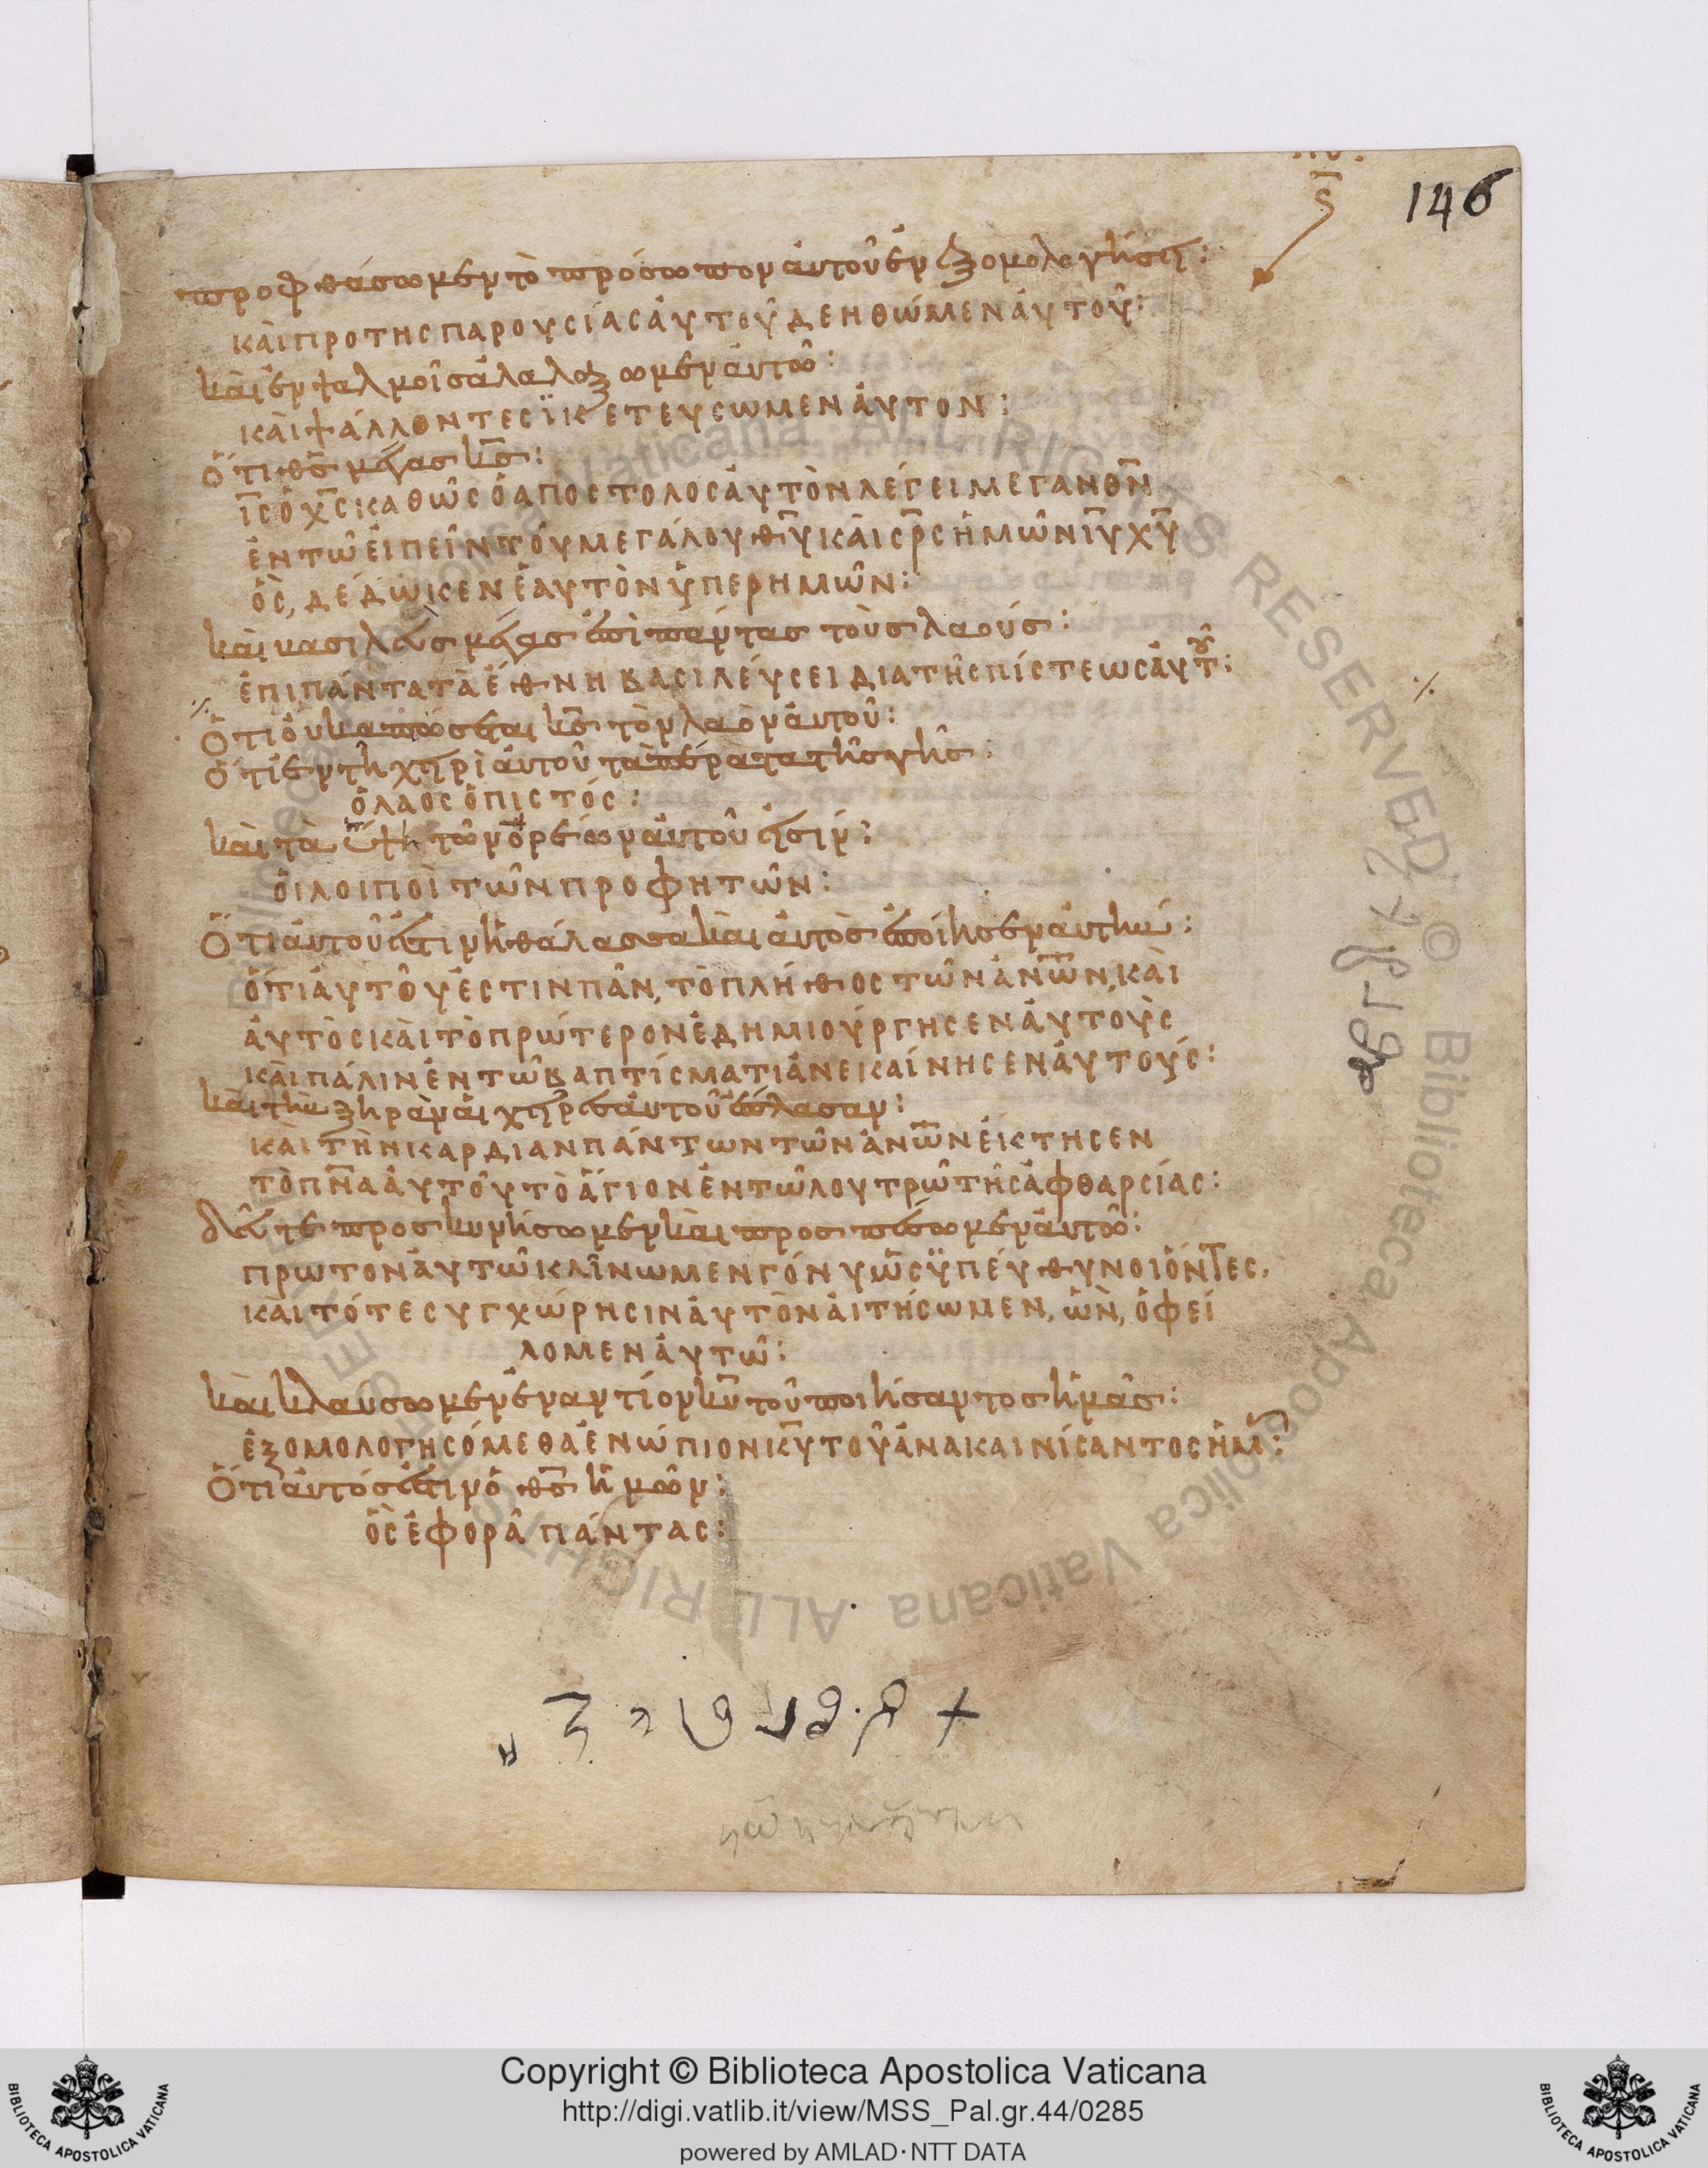 ς̄
146
προφθάσωμεν τὸ πρόσωπον ἀυτοῦ ἐν ἐξομολογήσει:
κὰι προ της παρουσίας ἀυτοῦ δεηθώμεν ἀυτοῦ:
κὰι ἐν ψαλμοῖς ἀλαλάξωμεν ἀυτῶ:
κὰι ψάλλοντες ϊκετευσωμεν ἀυτον:
Ὅτι θς̄ μέγας κς̄:
ις̄ ὁ χς̄ καθὼς ὁ αποστολος ἀυτὸν λέγει μεγαν θν̄
ἐν τῶ ἐιπεῖν τόυ μεγάλου θῡ κὰι σρ̄ς ἡμῶν ιῡ χῡ
ὃς, δέδωκεν ἑαυτὸν ὑπερ ημῶν:
κὰι βασιλεὺς μέγας ἐπὶ παντας τοὺς λαούς:
ἐπι πάντα τὰ έθνη βασιλέυσει δια τῆς πίστεως ἀυτ̂:
Ὅτι ὀυκ απώσεται κς̄ τὸν λαὸν ἀυτοῦ:
Ὅτι ἐν τῆ χειρὶ ἀυτοῦ τὰ πέρατα τῆς γῆς:
ὁ λαὸς ὁ πιστός:
κὰι τὰ ὕψη τῶν ὀρέων ἀυτοῦ ἐισιν:
ὁι λοιποὶ τῶν προφητῶν:
Ὅτι ἀυτοῦ ἐστιν ἡ θάλασσα κὰι ἀυτὸς ἐποίησεν ἀυτήν:
ὅτι ἀυτοῦ ἐστιν πᾶν, τὸ πλήθος τῶν ἀνω̄ν, κὰι
ἀυτὸς κὰι τὸ πρώτερον ἐδημιούργησεν ἀυτοὺς
κὰι πάλιν ἐν τῶ βαπτίσματι ἀνεκαίνησεν ἀυτούς:
κὰι τὴν ξηρὰν ἁι χεῖρες ἀυτοῦ ἔπλασαν:
κὰι τὴν καρδιαν πάντων τῶν ἀνω̄ν ἐκτησεν
τὸ πν̄α ἀυτοῦ τὸ ἅγιον ἐν τῶ λουτρῶ τῆς ἀφθαρσίας:
δεῦτε προσκυνήσωμεν κὰι προσπέσωμεν ἀυτῶ:
πρωτον ἀυτῶ κλῖνωμεν γόνυ ὡς ϋπέυθυνοι ὄντες,
κὰι τότε συγχώρησιν ἀυτὸν ἀιτήσωμεν, ὧν, ὀφεί
λομεν ἀυτῶ:
κὰι κλαύσωμεν ἐναντίον κῡ τοῦ ποιήσαντος ἡμᾶς:
ἐξομολογησόμεθα ἐνώπιον κῡ του ἀνακαινίσαντος ἡμ̂:
Ὅτι ἀυτός ἐστιν ὁ θς̄ ἡμῶν:
ὃς ἐφορᾶ πάντας:
Copyright © Biblioteca Apostolica Vaticana
http://digi.vatlib.it/view/MSS_Pal.gr.44/0285
powered by AMLAD·NTT DATA
BIBLIOTECA APOSTOLICA VATICANA
BIBLIOTECA APOSTOLICA VATICANA